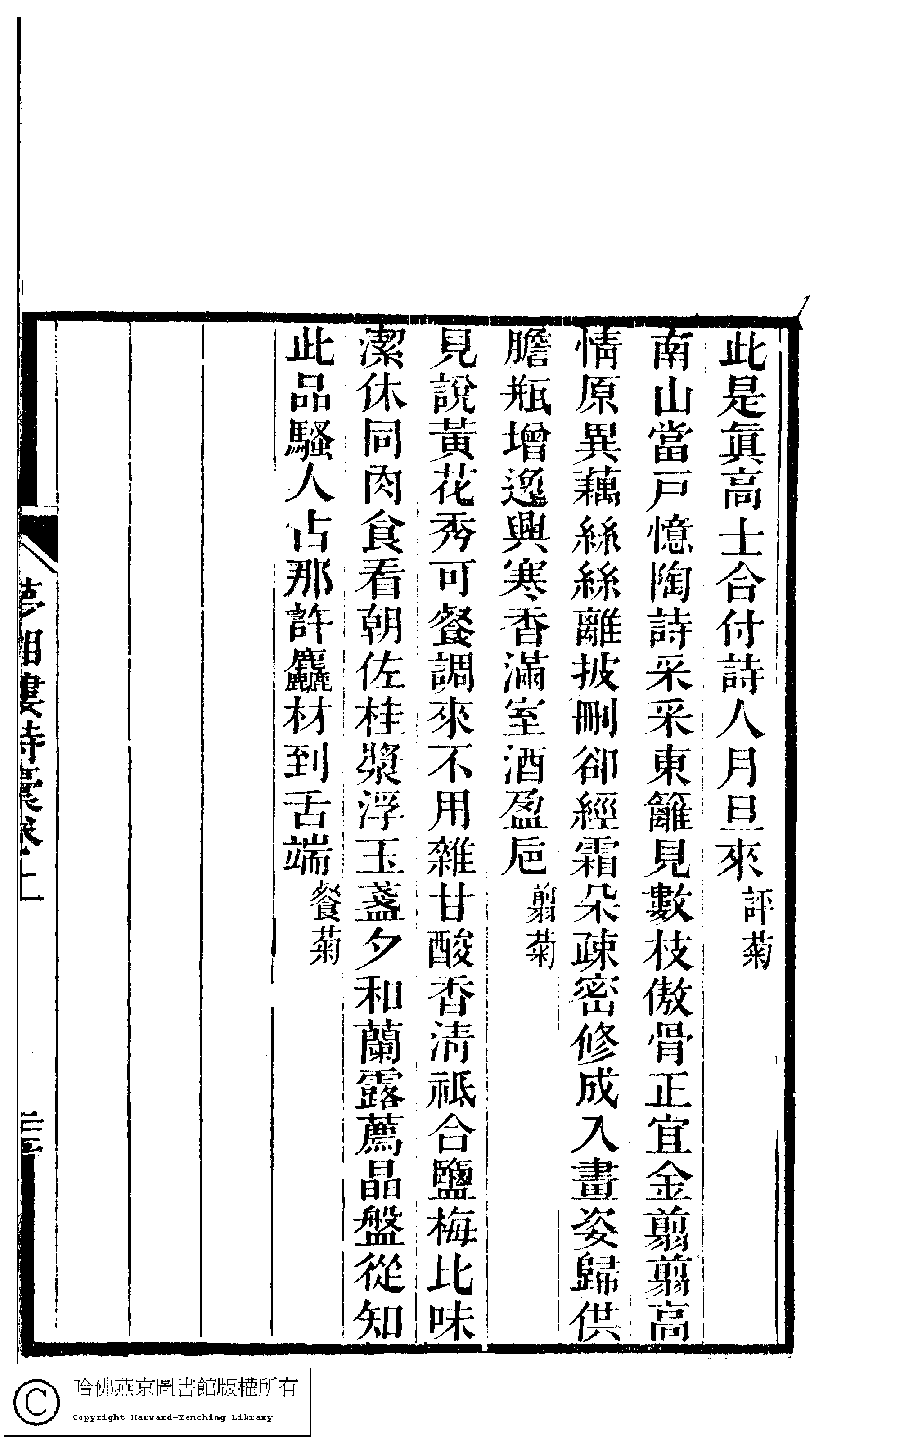 此是眞高士合付詩人月旦來評菊
南山當戸憶陶詩采采東籬見數枝傲骨正宜金翦翦高
情原異藕絲絲離披刪卻經霜朵疎密修成入畫姿歸供
膽瓶增逸興寒香滿室酒盈巵翦菊
見說黃花秀可餐調來不用雜甘酸香清祗合鹽梅比味
潔休同肉食看朝佐桂漿浮玉盞夕和蘭露薦晶盤從知
此品騷人占那許麤材到舌端餐菊
夢湘樓詩稾卷上
三
哈佛燕京圖書館版權所有
Copyright Harvard-Yenching Library